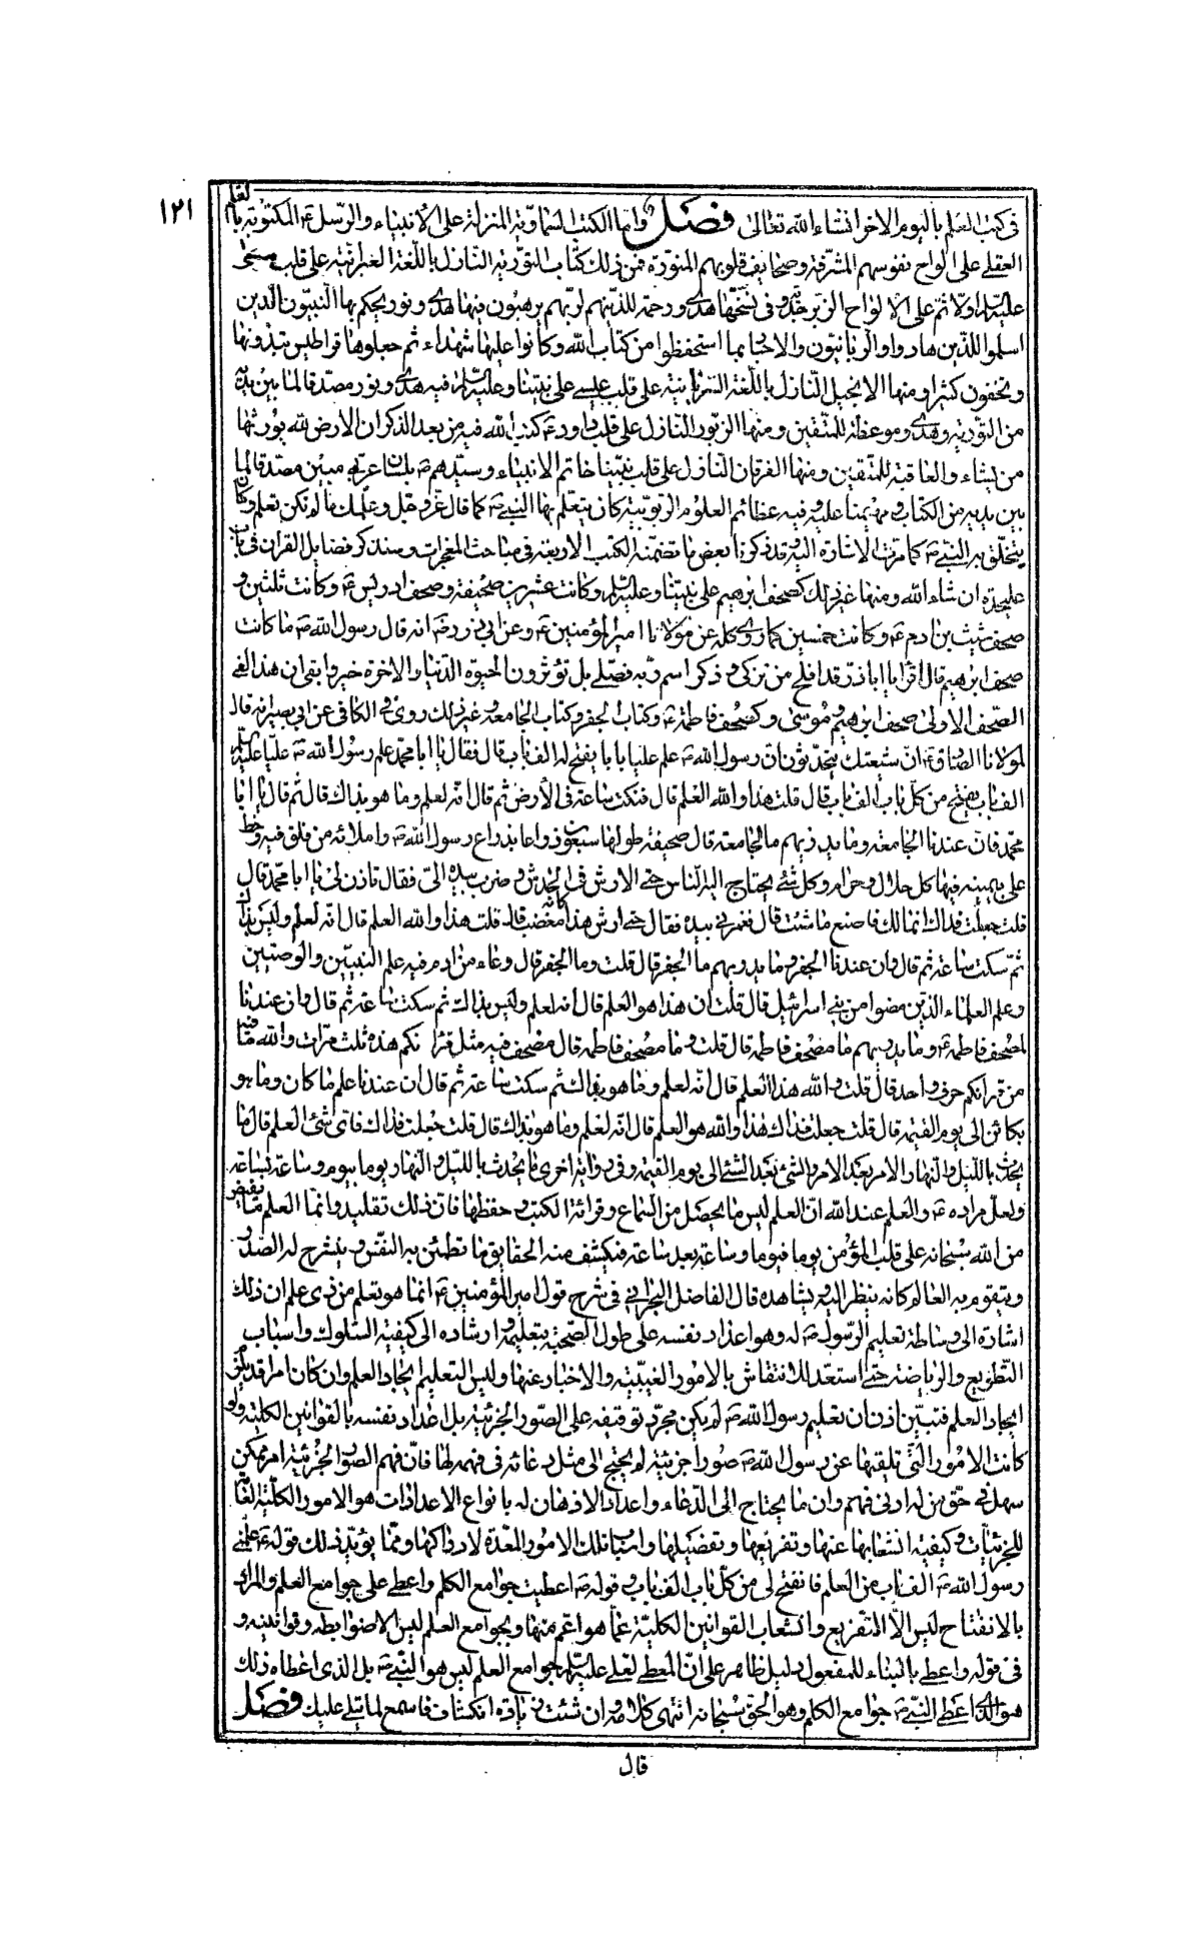 ١٢١
فى كتب العلم باليوم الاخر انشاء الله تعالى فصل واما الكتب السماوية المنزلة على الانبياء والرسل ع المكتوبة بالقلم
العقلى على الواح نفوسهم المشرفة وصحايف قلوبهم المنورة فمن ذلك كتاب التورية النازل باللغة العبرانية على قلب موسى
عليه السلام اولا ثم على الالواح الزبرجدية وفى نسختها هدى ورحمة للذين هم لربهم يرهبون فيها هدى ونور يحكم بها النبيون الذين
اسلموا للذين هادوا والربانيون والاحبار بما استحفظوا من كتاب الله وكانوا عليها شهداء ثم جعلوها قراطيس تبدونها
وتخفون كثيرا ومنها الانجيل النازل باللغة السريانية على قلب عيسى على نبينا وعليه السلام فيه هدى ونور مصدقا لما بين يديه
من التورية وهدى وموعظة للمتقين ومنها الزبور النازل على قلب داود ع كتب الله فيه من بعد الذكر ان الارض لله يورثها
من يشاء والعاقبة للمتقين ومنها الفرقان النازل على قلب نبينا خاتم الانبياء وسيدهم ص بلسان عربى مبين مصدقا لما
بين يديه من الكتاب ومهيمنا عليه وفيه عظائم العلوم الربوبية كان يتعلم بها النبى ص كما قال عز وجل وعلمك ما لم تكن تعلم وكان
يتخلق به النبى ص كما مرت الاشارة اليه وقد ذكرنا بعض ما تضمنه الكتب الاربعة فى مباحث المعجزات وسنذكر فضايل القران فى باب
عليحدة ان شاء الله ومنها غير ذلك كصحف ابرهيم على نبينا وعليه السلام وكانت عشرين صحيفة وصحف ادريس ع وكانت ثلثين و
صحف شيث بن ادم ع وكانت خمسين كما روى كله عن مولانا امير المؤمنين ع وعن ابى ذر رض انه قال رسول الله ص ما كانت
صحف ابرهيم قال اقرأ يا اباذر قد افلح من تزكى وذكر اسم ربه فصلى بل تؤثرون الحيوة الدنيا والاخرة خير وابقى ان هذا لفى
الصحف الاولى صحف ابرهيم وموسى وكمصحف فاطمة ع وكتاب الجفر وكتاب الجامعة وغير ذلك روى فى الكافى عن ابى بصير انه قال
لمولانا الصادق ع ان شيعتك يتحدثون ان رسول الله ص علم عليا بابا يفتح له الف باب قال فقال يا ابا محمد علم رسول الله ص عليا عليه السلم
الف باب يفتح من كل باب الف باب قال قلت هذا والله العلم قال فنكت ساعة فى الأرض ثم قال انه لعلم وما هو بذاك قال ثم قال يا ابا
محمد فان عندنا الجامعة وما يدريهم ما الجامعة قال صحيفة طولها سبعون ذراعا بذراع رسول الله ص واملائه من فلق فيه وخط
على بيمينه فيها كل حلال وحرام وكل شئ يحتاج اليه الناس حتى الارش فى الخدش وضرب بيده الى فقال تاذن لى يا ابا محمد قال
قلت جعلت فداك انما لك فاصنع ما شئت قال فغمزنى بيده فقال حتى ارش هذا كانه مغضب قال قلت هذا والله العلم قال انه لعلم وليس بذاك
ثم سكت ساعة ثم قال وان عندنا الجفر وما يدريهم ما الجفر قال قلت وما الجفر قال وعاء من ادم فيه علم النبيين والوصيين
وعلم العلماء الذين مضوا من بنى اسرائيل قال قلت ان هذا هو العلم قال انه لعلم وليس بذاك ثم سكت ساعة ثم قال وان عندنا
لمصحف فاطمة ع وما يدريهم ما مصحف فاطمة قال قلت وما مصحف فاطمة قال مصحف فيه مثل قرانكم هذه ثلث مرات والله ما فيه
من قرانكم حرف واحد قال قلت والله هذا العلم قال انه لعلم وما هو بذاك ثم سكت ساعة ثم قال ان عندنا علم ما كان وما هو
بكائن الى يوم القيمة قال قلت جعلت فداك هذا والله هو العلم قال انه لعلم وما هو بذاك قال قلت جعلت فداك فاى شئ العلم قال ما
يحدث بالليل والنهار الامر بعد الامر والشئ بعد الشئ الى يوم القيمة وفى رواية اخرى ما يحدث بالليل والنهار يوما بيوم وساعة بساعة
ولعل مراده ع والعلم عند الله ان العلم ليس ما يحصل من السماع وقرائة الكتب وحفظها فان ذلك تقليد وانما العلم ما يفيض
من الله سبحانه على قلب المؤمن يوما فيوما وساعة بعد ساعة فينكشف منه الحقايق ما تطمئن به النفس وينشرح له الصدر
ويتقوم به العالم كانه ينظر اليه ويشاهده قال الفاضل البحرانى فى شرح قول امير المؤمنين ع انما هو تعلم من ذى علم ان ذلك
اشارة الى وساطة تعليم الرسول ص له وهو اعداد نفسه على طول الصحبة بتعليمه وارشاده الى كيفية السلوك واسباب
التطويع والرياضة حتى استعد للانتقاش بالامور الغيبية والاخبار عنها وليس التعليم ايجاد العلم وان كان امرا قد يلزمه
ايجاد العلم فتبين اذن ان تعليم رسول الله ص لم يكن مجرد توقيفه على الصور الجزئية بل اعداد نفسه بالقوانين الكلية ولو
كانت الامور التى تلقيها عن رسول الله ص صورا جزئية لم يحتج الى مثل دعائه فى فهمه لها فان فهم الصور الجزئية امر ممكن
سهل فى حق من له ادنى فهم وان ما يحتاج الى الدعاء واعداد الاذهان له بانواع الاعدادات هو الامور الكلية العامة
للجزئيات وكيفية انشعابها عنها وتفريعها وتفصيلها واسباب تلك الامور المعدة لادراكها ومما يؤيد ذلك قوله ع علمنى
رسول الله ص الف باب من العلم فانفتح لى من كل باب الف باب وقوله ص اعطيت جوامع الكلم واعطى على جوامع العلم والمراد
بالانفتاح ليس الا التفريع وانشعاب القوانين الكلية عما هو اعم منها وبجوامع العلم ليس الا ضوابطه وقوانينه و
فى قوله واعطى بالبناء للمفعول دليل ظاهر على ان المعطى لعلى عليه السلم جوامع العلم ليس هو النبى ص بل الذى اعطاه ذلك
هو الذى اعطى النبى ص جوامع الكلم وهو الحق سبحانه انتهى كلامه وان شئت زيادة انكشاف فاسمع لما يتلى عليك فصل
قال